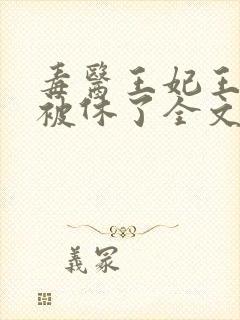 毒醫王妃王
被休了全文
義冢